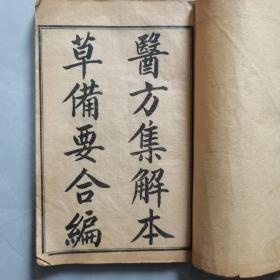 醫方集解本
草備要合編